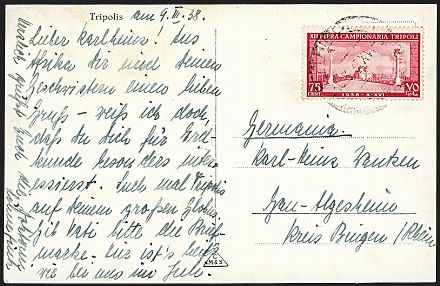 Tripolis am 9. III. 38.
Lieber Karlheinz! Aus
Afrika Dir und Deinen
Geschwistern einen lieben
Gruß – weiß ich doch,
daß Du Dich für Erd-
kunde besonders inter-
essierst. Such mal Tripolis
auf Deinem großen Globus.
Gib Vati bitte die Brief-
marke. Hier ist's heiß
wie bei uns im Juli.
Herzlich grüßt Euch
XII FIERA CAMPIONARIA TRIPOLI
75
CENT.
1938 - A·XVI
Germania.
Karl-Heinz
Gau-Algesheim
Kreis Bingen / Rhein